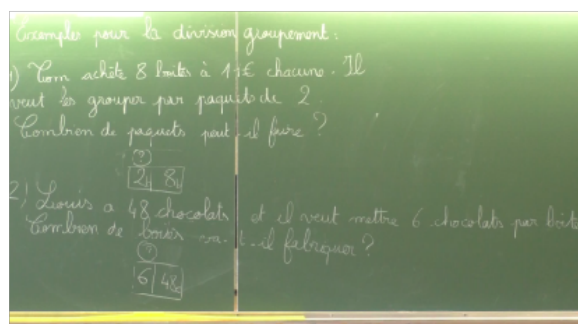 Exemples pour la division groupement :
1) Tom achète 8 boîtes à 11€ chacune. Il
veut les grouper par paquets de 2.
Combien de paquets peut-il faire ?
?
2 8
2) Louis a 48 chocolats et il veut mettre 6 chocolats par boîte
Combien de boîtes va-t-il fabriquer ?
?
6 48